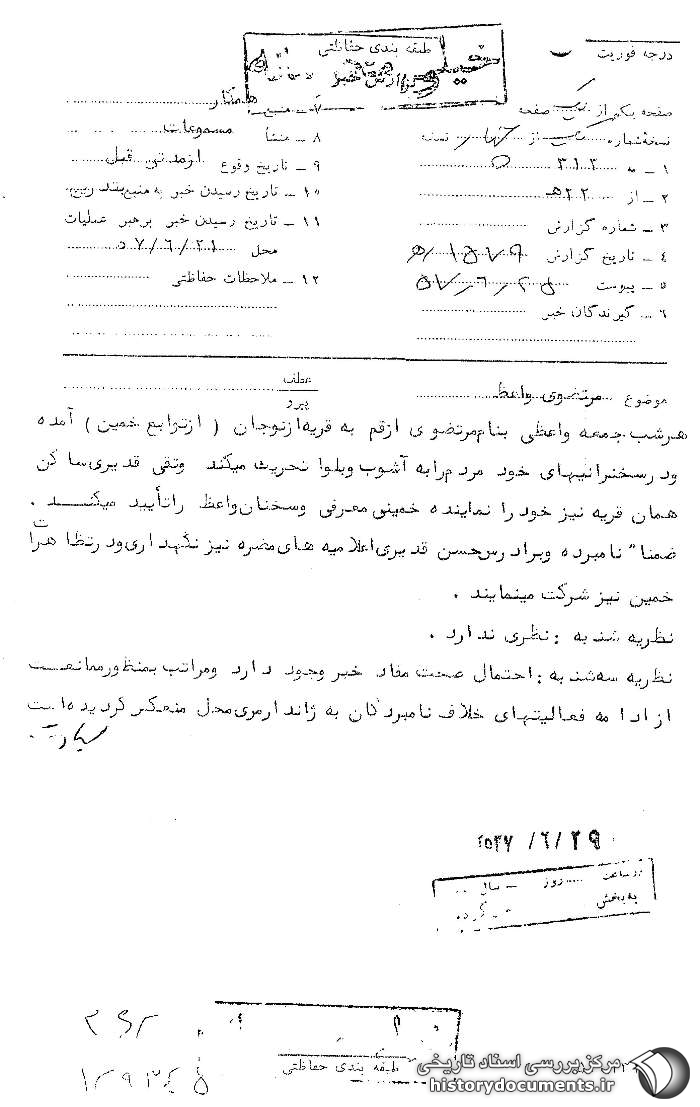 طبقه بندی حفاظتی
خیلی محرمانه
گزارش خبر
درجه فوریت
صفحه یکم از یک صفحه
نسخه شماره یک از نسخه
۱ ـ به ۳۱۲
۲ ـ از ۲۲هـ
۳ ـ شماره گزارش
۴ ـ تاریخ گزارش ۱۵۷۹/ه
۵ ـ پیوست ۵۷/۶/۲۵
۶ ـ گیرندگان خبر
۷ ـ منبع همکار
۸ ـ منشأ مسموعات
۹ ـ تاریخ وقوع ازمدتی قبل
۱۰ ـ تاریخ رسیدن خبر به منبع بتدریج
۱۱ ـ تاریخ رسیدن خبر برهبر عملیات
محل ۵۷/۶/۲۱
۱۲ ـ ملاحظات حفاظتی
موضوع مرتضوی واعظ
عطف
پیرو
هرشب جمعه واعظی بنام مرتضوی ازقم به قریه ازنوجان ( ازتوابع خمین ) آمده
ودرسخنرانیهای خود مردم رابه آشوب وبلوا تحریک میکند وتقی قدیری ساکن
همان قریه نیز خود را نماینده خمینی معرفی وسخنان واعظ راتأیید میکند .
ضمنا" نامبرده وبرادرش حسن قدیری اعلامیه های مضره نیز نگهداری ودرتظاهرات
خمین نیز شرکت مینمایند .
نظریه شنبه : نظری ندارد .
نظریه سه شنبه : احتمال صحت مفاد خبر وجود دارد ومراتب بمنظورممانعت
از ادامه فعالیتهای خلاف نامبردگان به ژاندارمری محل منعکس گردیده است
۲۵۳۷/۶/۲۹
در ساعت روز سال
به بخش
طبقه بندی حفاظتی
مرکز بررسی اسناد تاریخی
historydocuments.ir